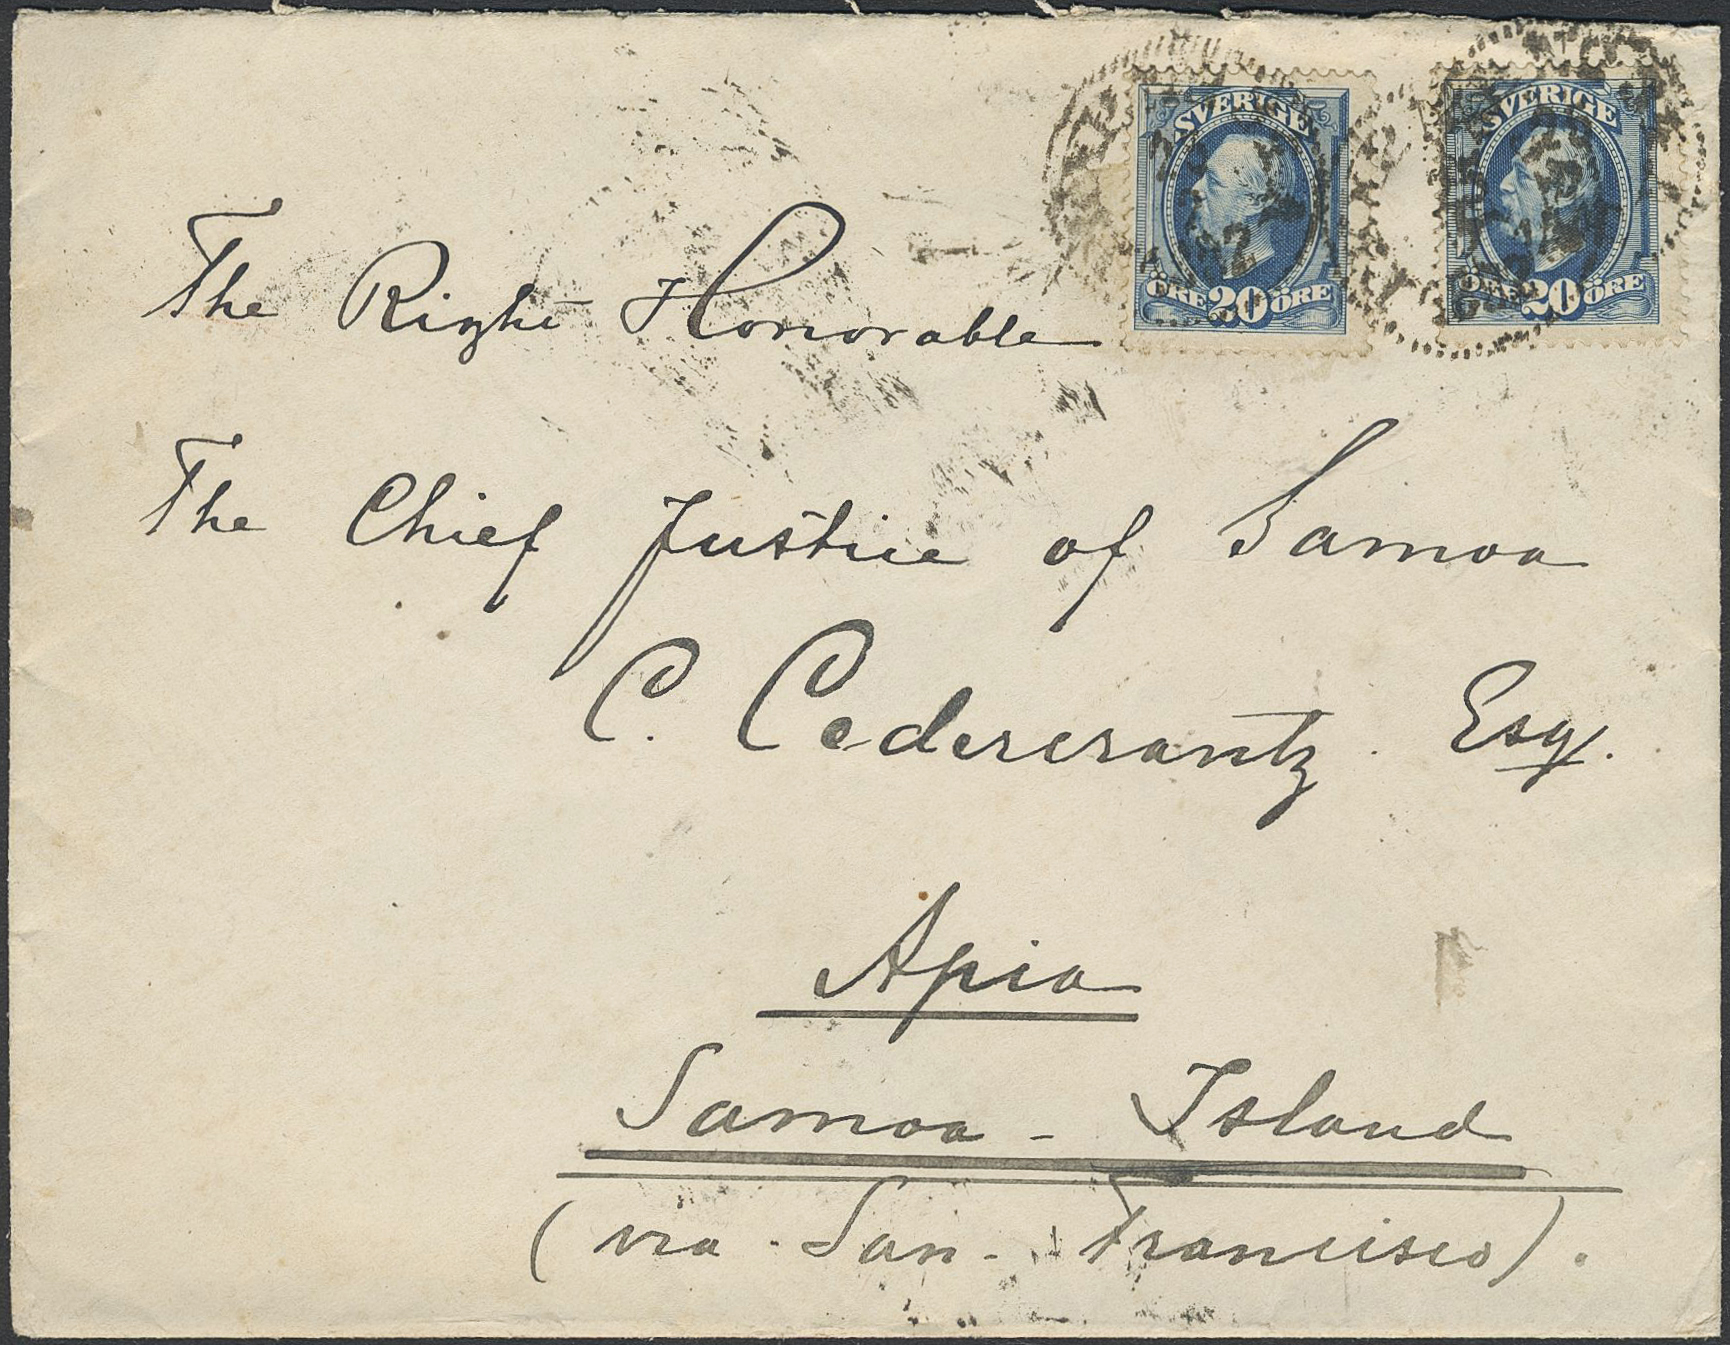 SVERIGE
ÖRE 20 ÖRE
SVERIGE
ÖRE 20 ÖRE
The Right Honorable
The Chief Justice of Samoa
C. Cedercrantz. Esq.
Apia
Samoa - Island
(via. San - Francisco).